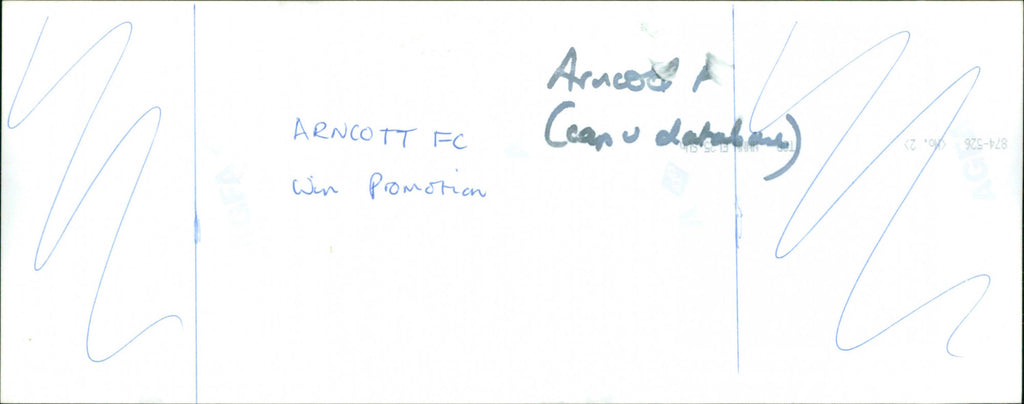 ARNCOTT FC
Win Promotion
Arncott F
(cap u database)
874-526 <No. 2>
AGFA